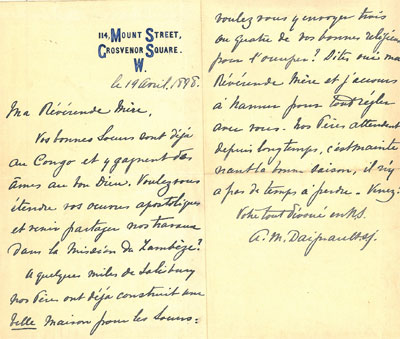 114, MOUNT STREET,
GROSVENOR SQUARE.
W.
le 19 avril. 1898.
Ma Révérende Mère,
Vos bonnes Soeurs sont déjà
au Congo et y gagnent des
âmes au bon Dieu. Voulez-vous
étendre vos oeuvres apostoliques
et venir partager nos travaux
dans la Mission du Zambèze?
A quelques miles de Salisbury
nos Pères ont déjà construit une
belle maison pour les Soeurs:
voulez vous y envoyer trois
ou quatre de vos bonnes religieuses
pour l'occuper? Dites oui ma
Révérende Mère et j'accours
à Namur pour tout régler
avec vous. Nos Pères attendent
depuis longtemps, c'est mainte
nant la bonne saison, il n'y
a pas de temps à perdre. Venez!
Votre tout dévoué en
A. M. Daignault sj.